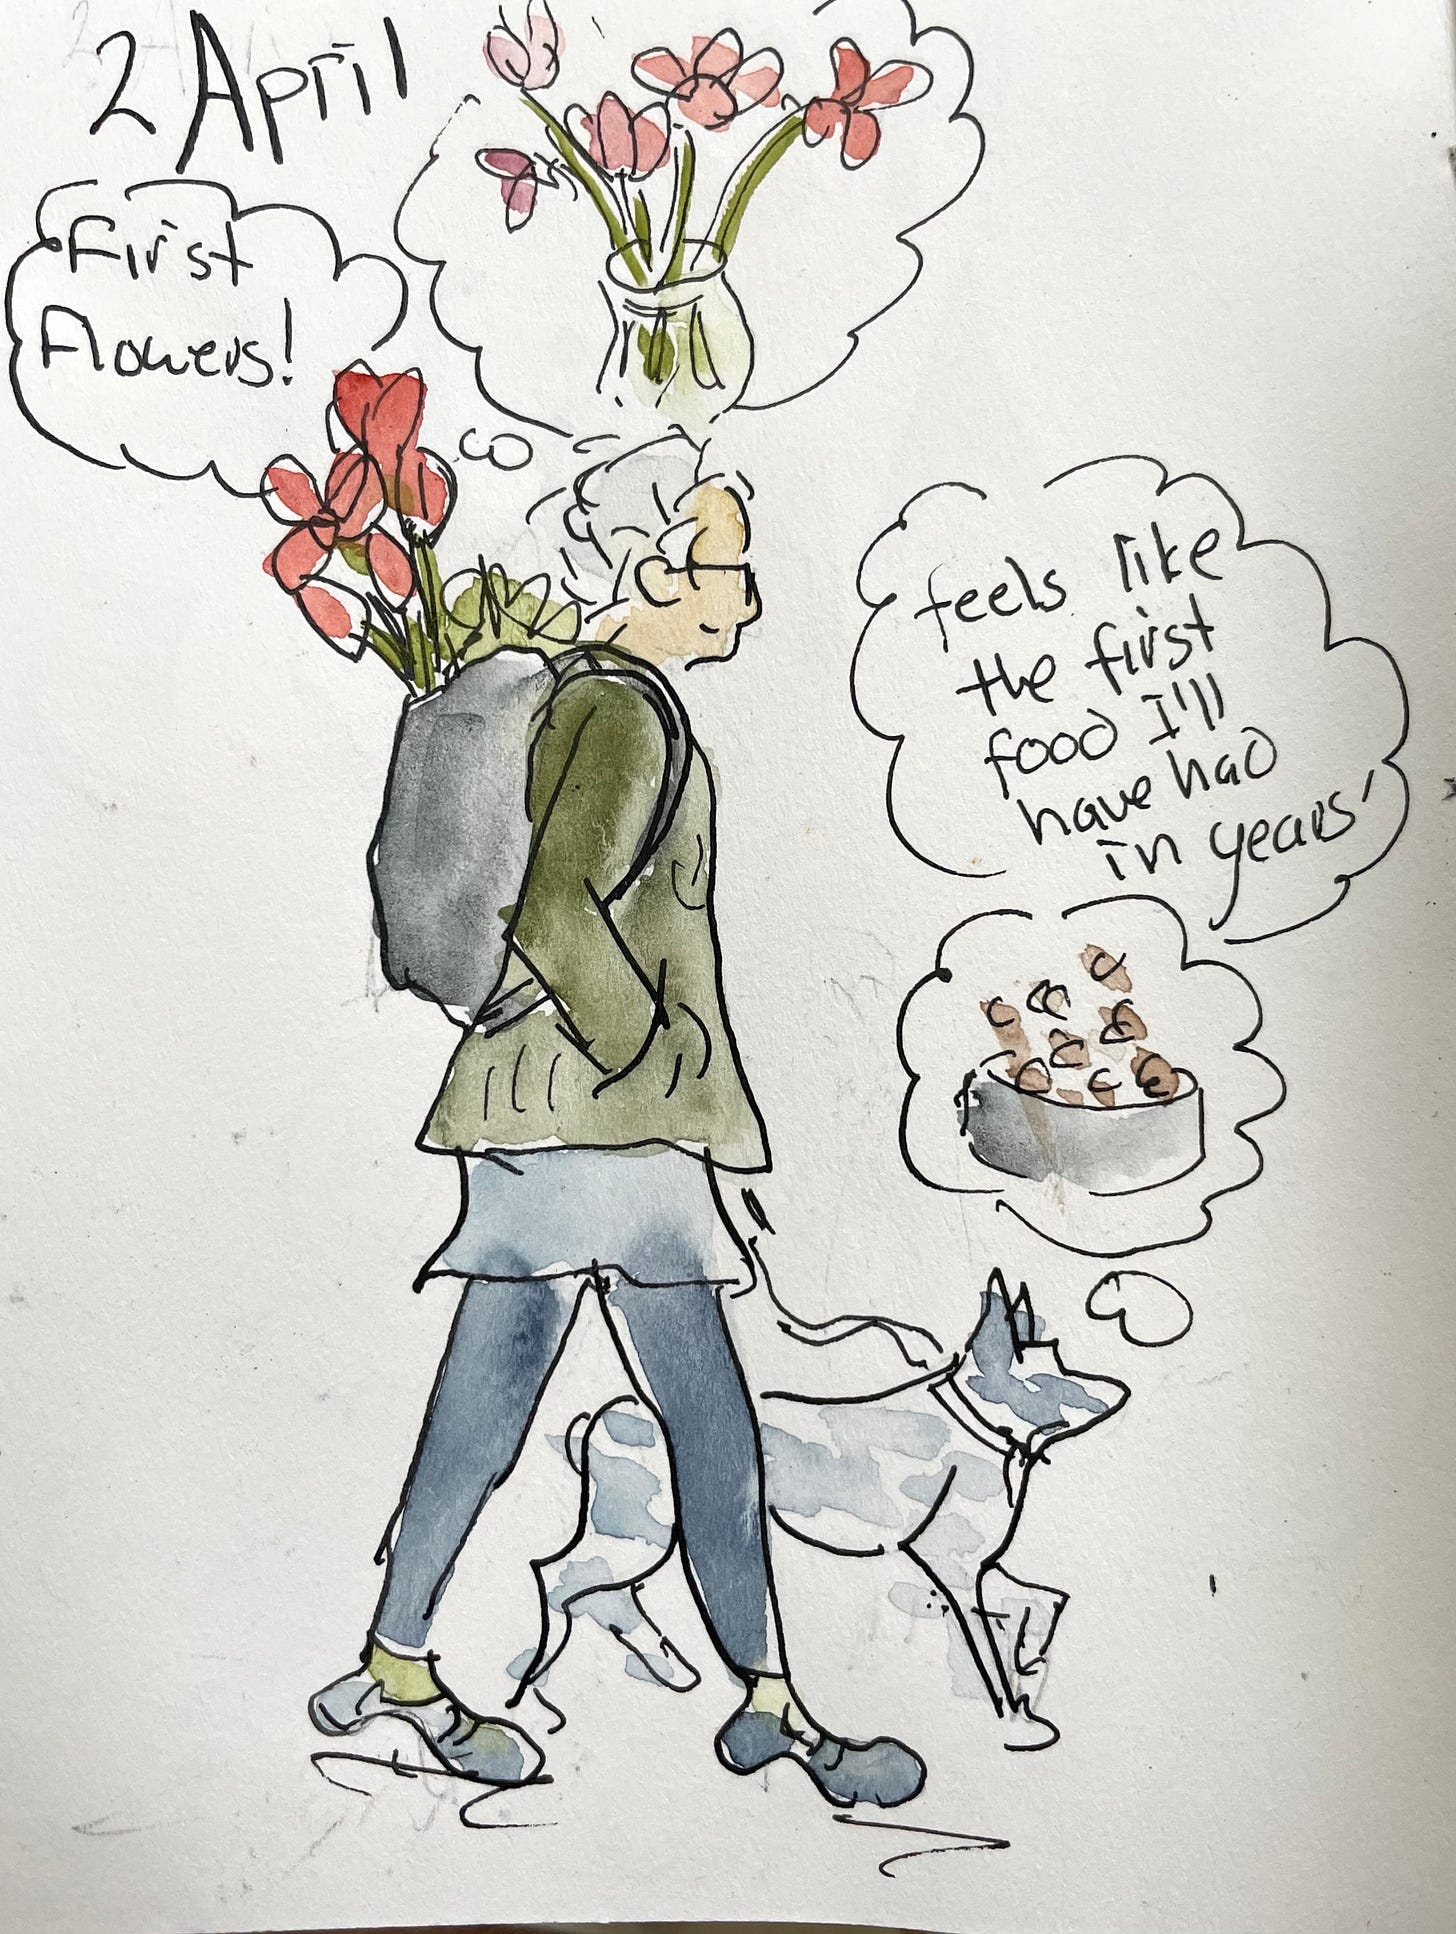 2 April
First
Flowers!
feels like
the first
food I'll
have had
in years'